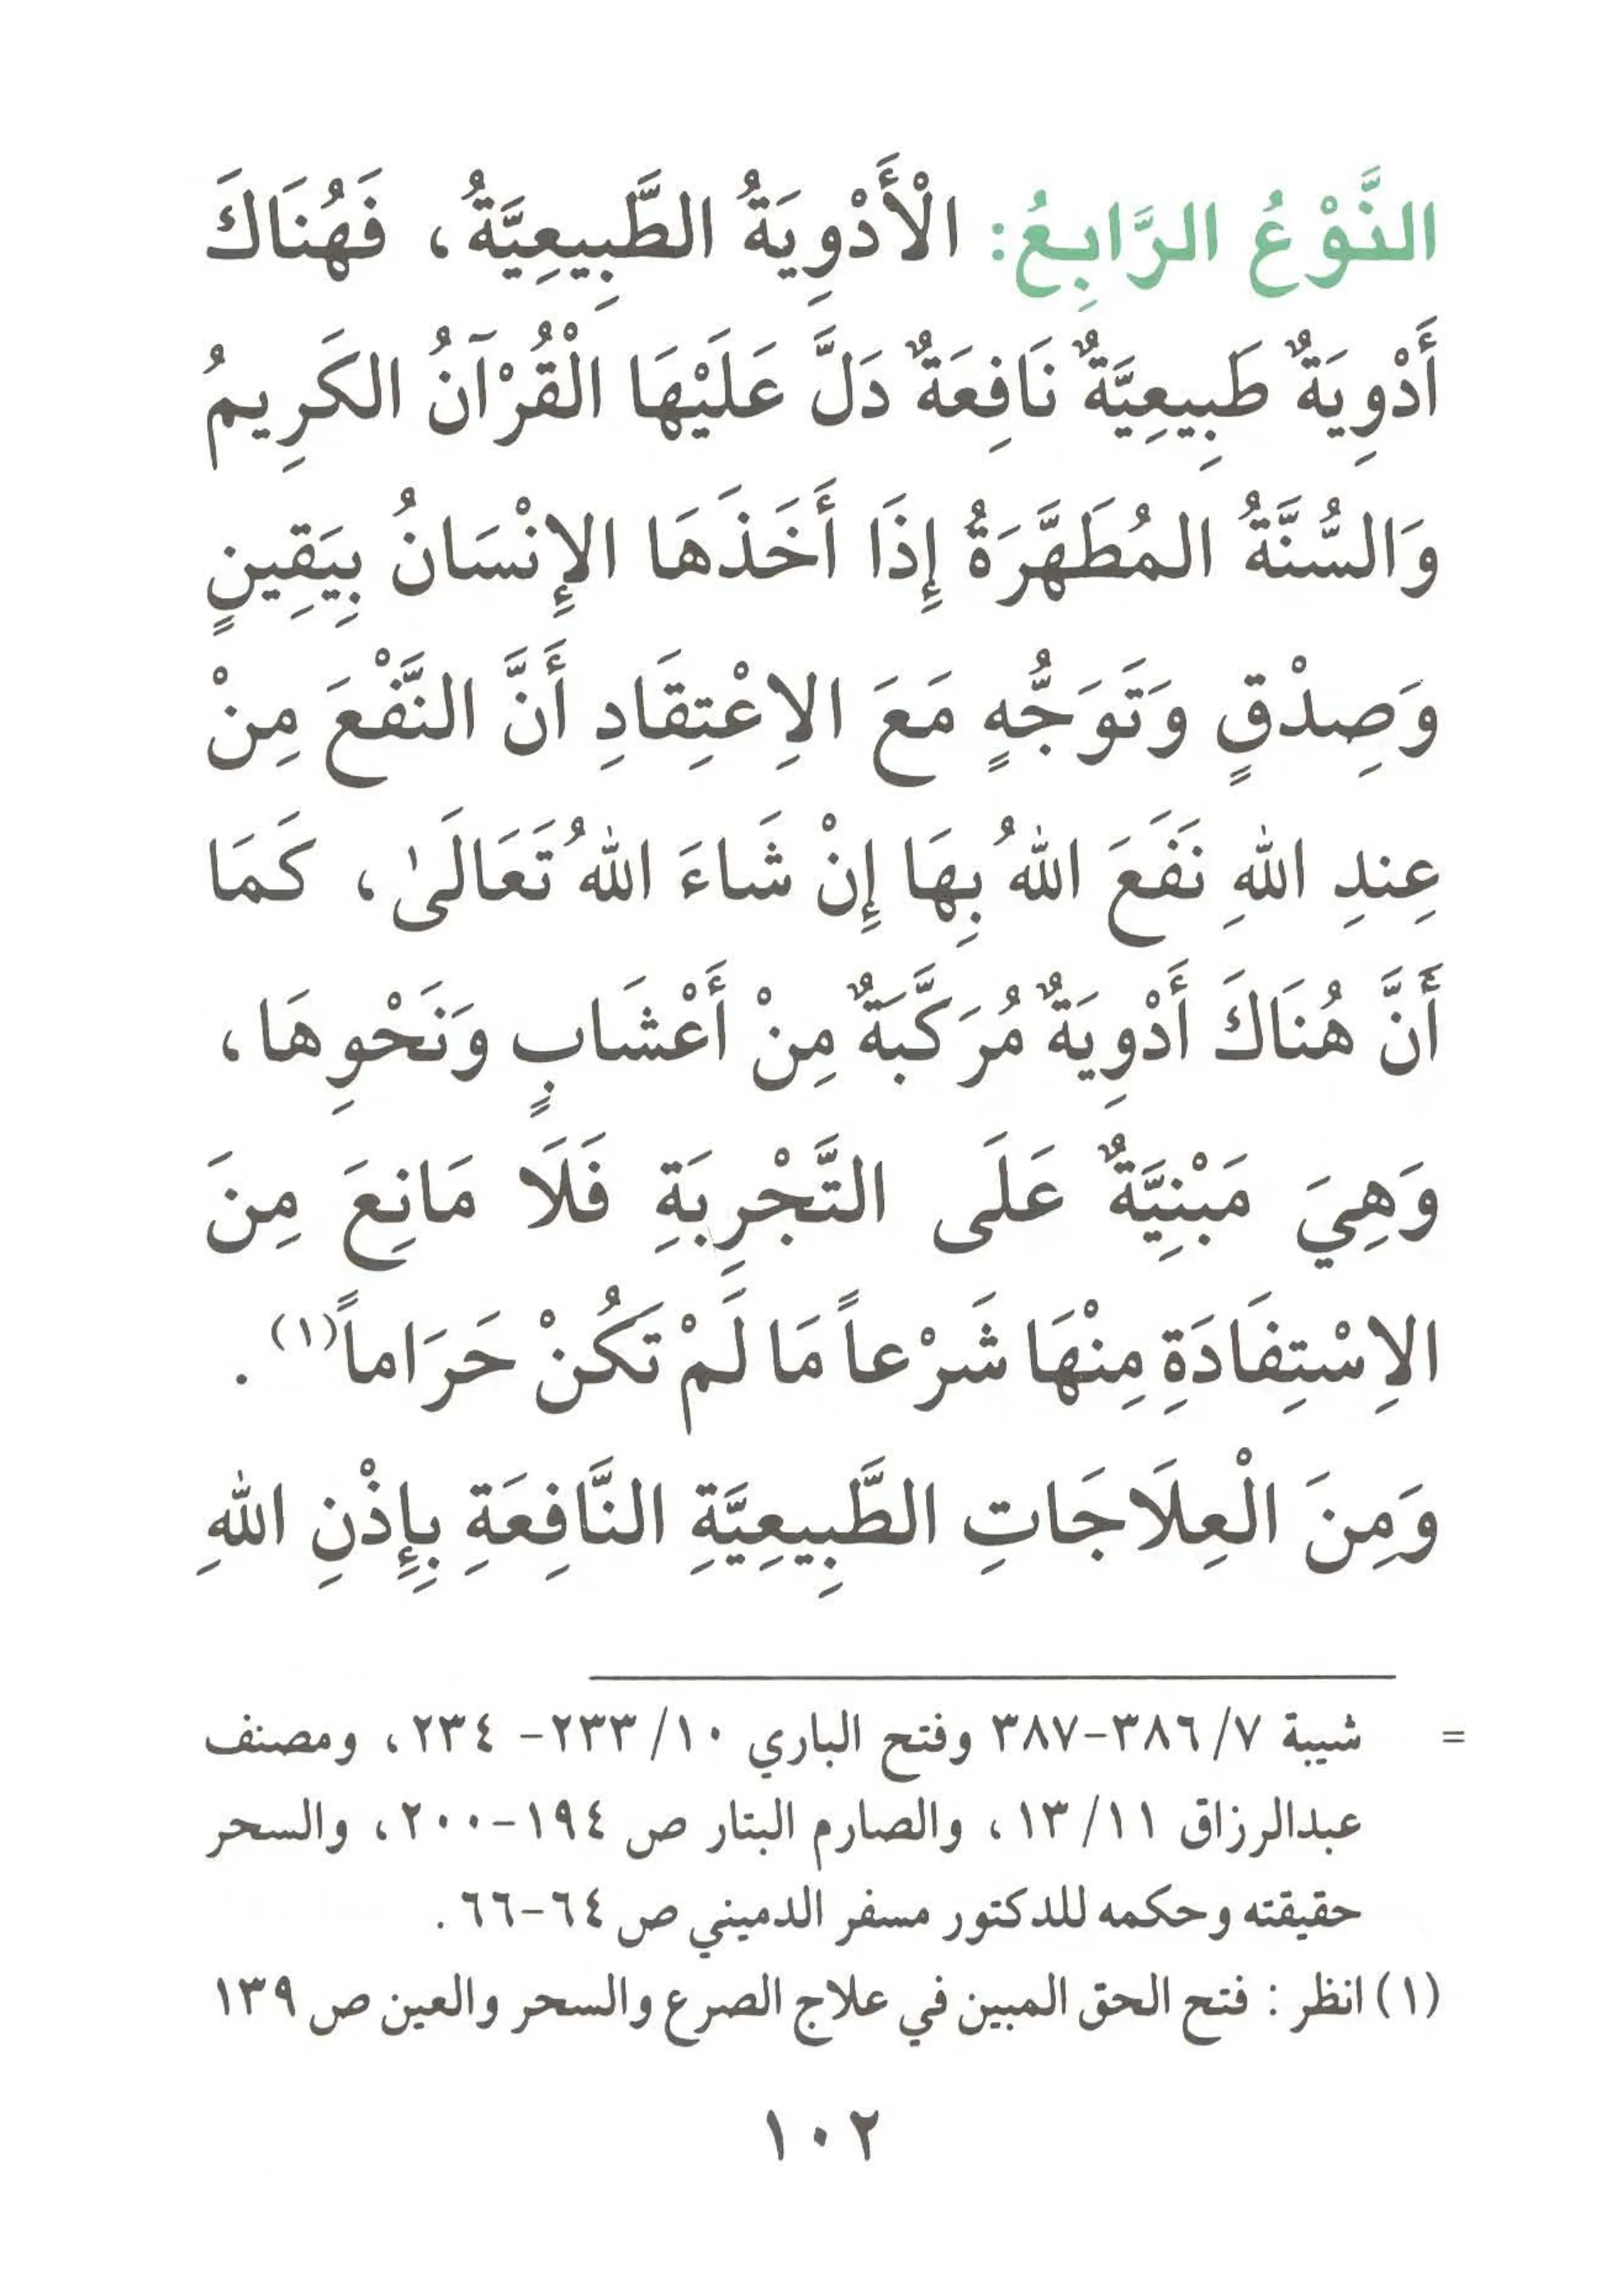 النَّوْعُ الرَّابِعُ: الْأَدْوِيَةُ الطَّبِيعِيَّةُ، فَهُنَاكَ
أَدْوِيَةٌ طَبِيعِيَّةٌ نَافِعَةٌ دَلَّ عَلَيْهَا الْقُرْآنُ الكَرِيمُ
وَالسُّنَّةُ المُطَهَّرَةُ إِذَا أَخَذَهَا الإِنْسَانُ بِيَقِينٍ
وَصِدْقٍ وَتَوَجُّهٍ مَعَ الاِعْتِقَادِ أَنَّ النَّفْعَ مِنْ
عِندِ اللهِ نَفَعَ اللهُ بِهَا إِنْ شَاءَ اللهُ تَعَالَىٰ، كَمَا
أَنَّ هُنَاكَ أَدْوِيَةٌ مُرَكَّبَةٌ مِنْ أَعْشَابٍ وَنَحْوِهَا،
وَهِيَ مَبْنِيَّةٌ عَلَى التَّجْرِبَةِ فَلَا مَانِعَ مِنَ
الاِسْتِفَادَةِ مِنْهَا شَرْعاً مَا لَمْ تَكُنْ حَرَاماً(١).
وَمِنَ الْعِلَاجَاتِ الطَّبِيعِيَّةِ النَّافِعَةِ بِإِذْنِ اللهِ
= شيبة ٧/ ٣٨٦-٣٨٧ وفتح الباري ١٠/ ٢٣٣- ٢٣٤، ومصنف
عبدالرزاق ١١/ ١٣، والصارم البتار ص ١٩٤-٢٠٠، والسحر
حقيقته وحكمه للدكتور مسفر الدميني ص ٦٤-٦٦.
(١) انظر: فتح الحق المبين في علاج الصرع والسحر والعين ص ١٣٩
١٠٢